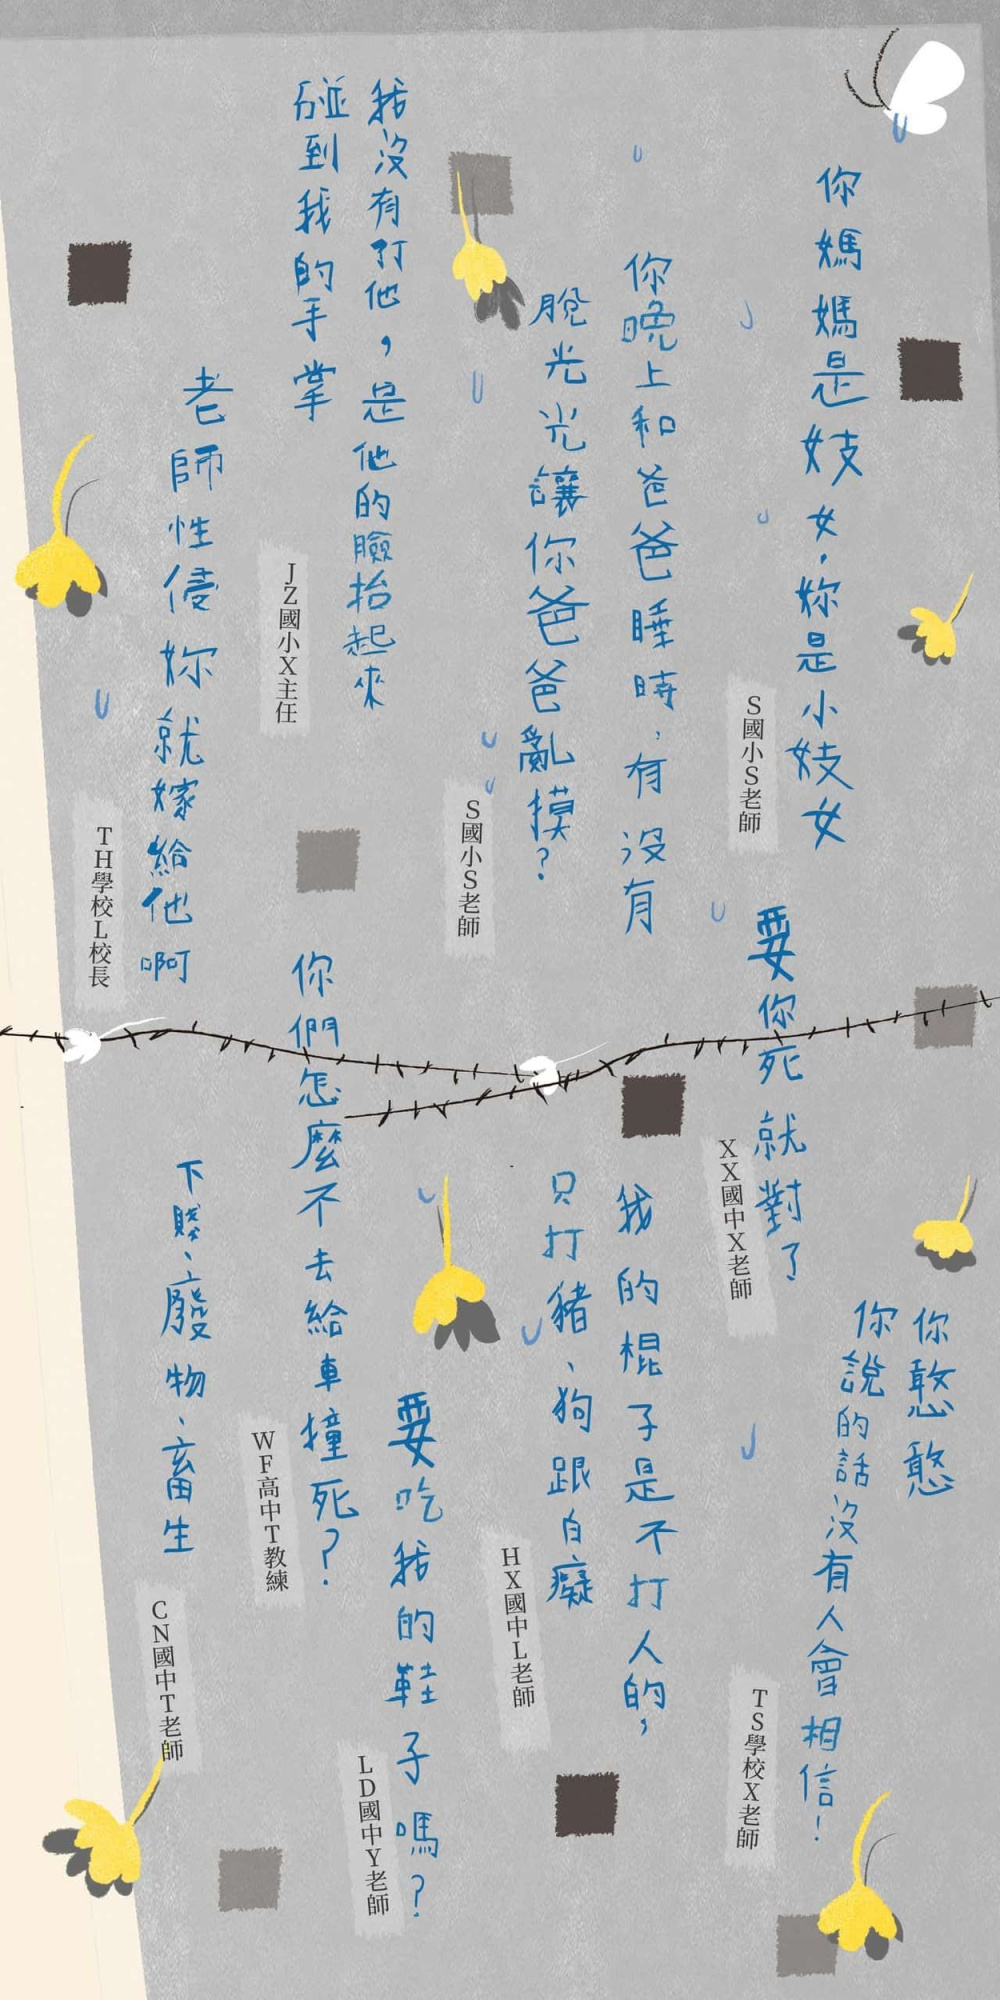 你媽媽是妓女，妳是小妓女
S國小S老師
你晚上和爸爸睡時，有沒有
脫光光讓你爸爸亂摸？
S國小S老師
我沒有打他，是他的臉抬起來
碰到我的手掌
JZ國小X主任
老師性侵妳就嫁給他啊
TH學校L校長
你憨憨
你說的話沒有人會相信！
TS學校X老師
要你死就對了
XX國中X老師
我的棍子是不打人的，
只打豬、狗跟白癡
HX國中L老師
要吃我的鞋子嗎？
LD國中Y老師
你們怎麼不去給車撞死？
WF高中T教練
下賤、廢物、畜生
CN國中T老師